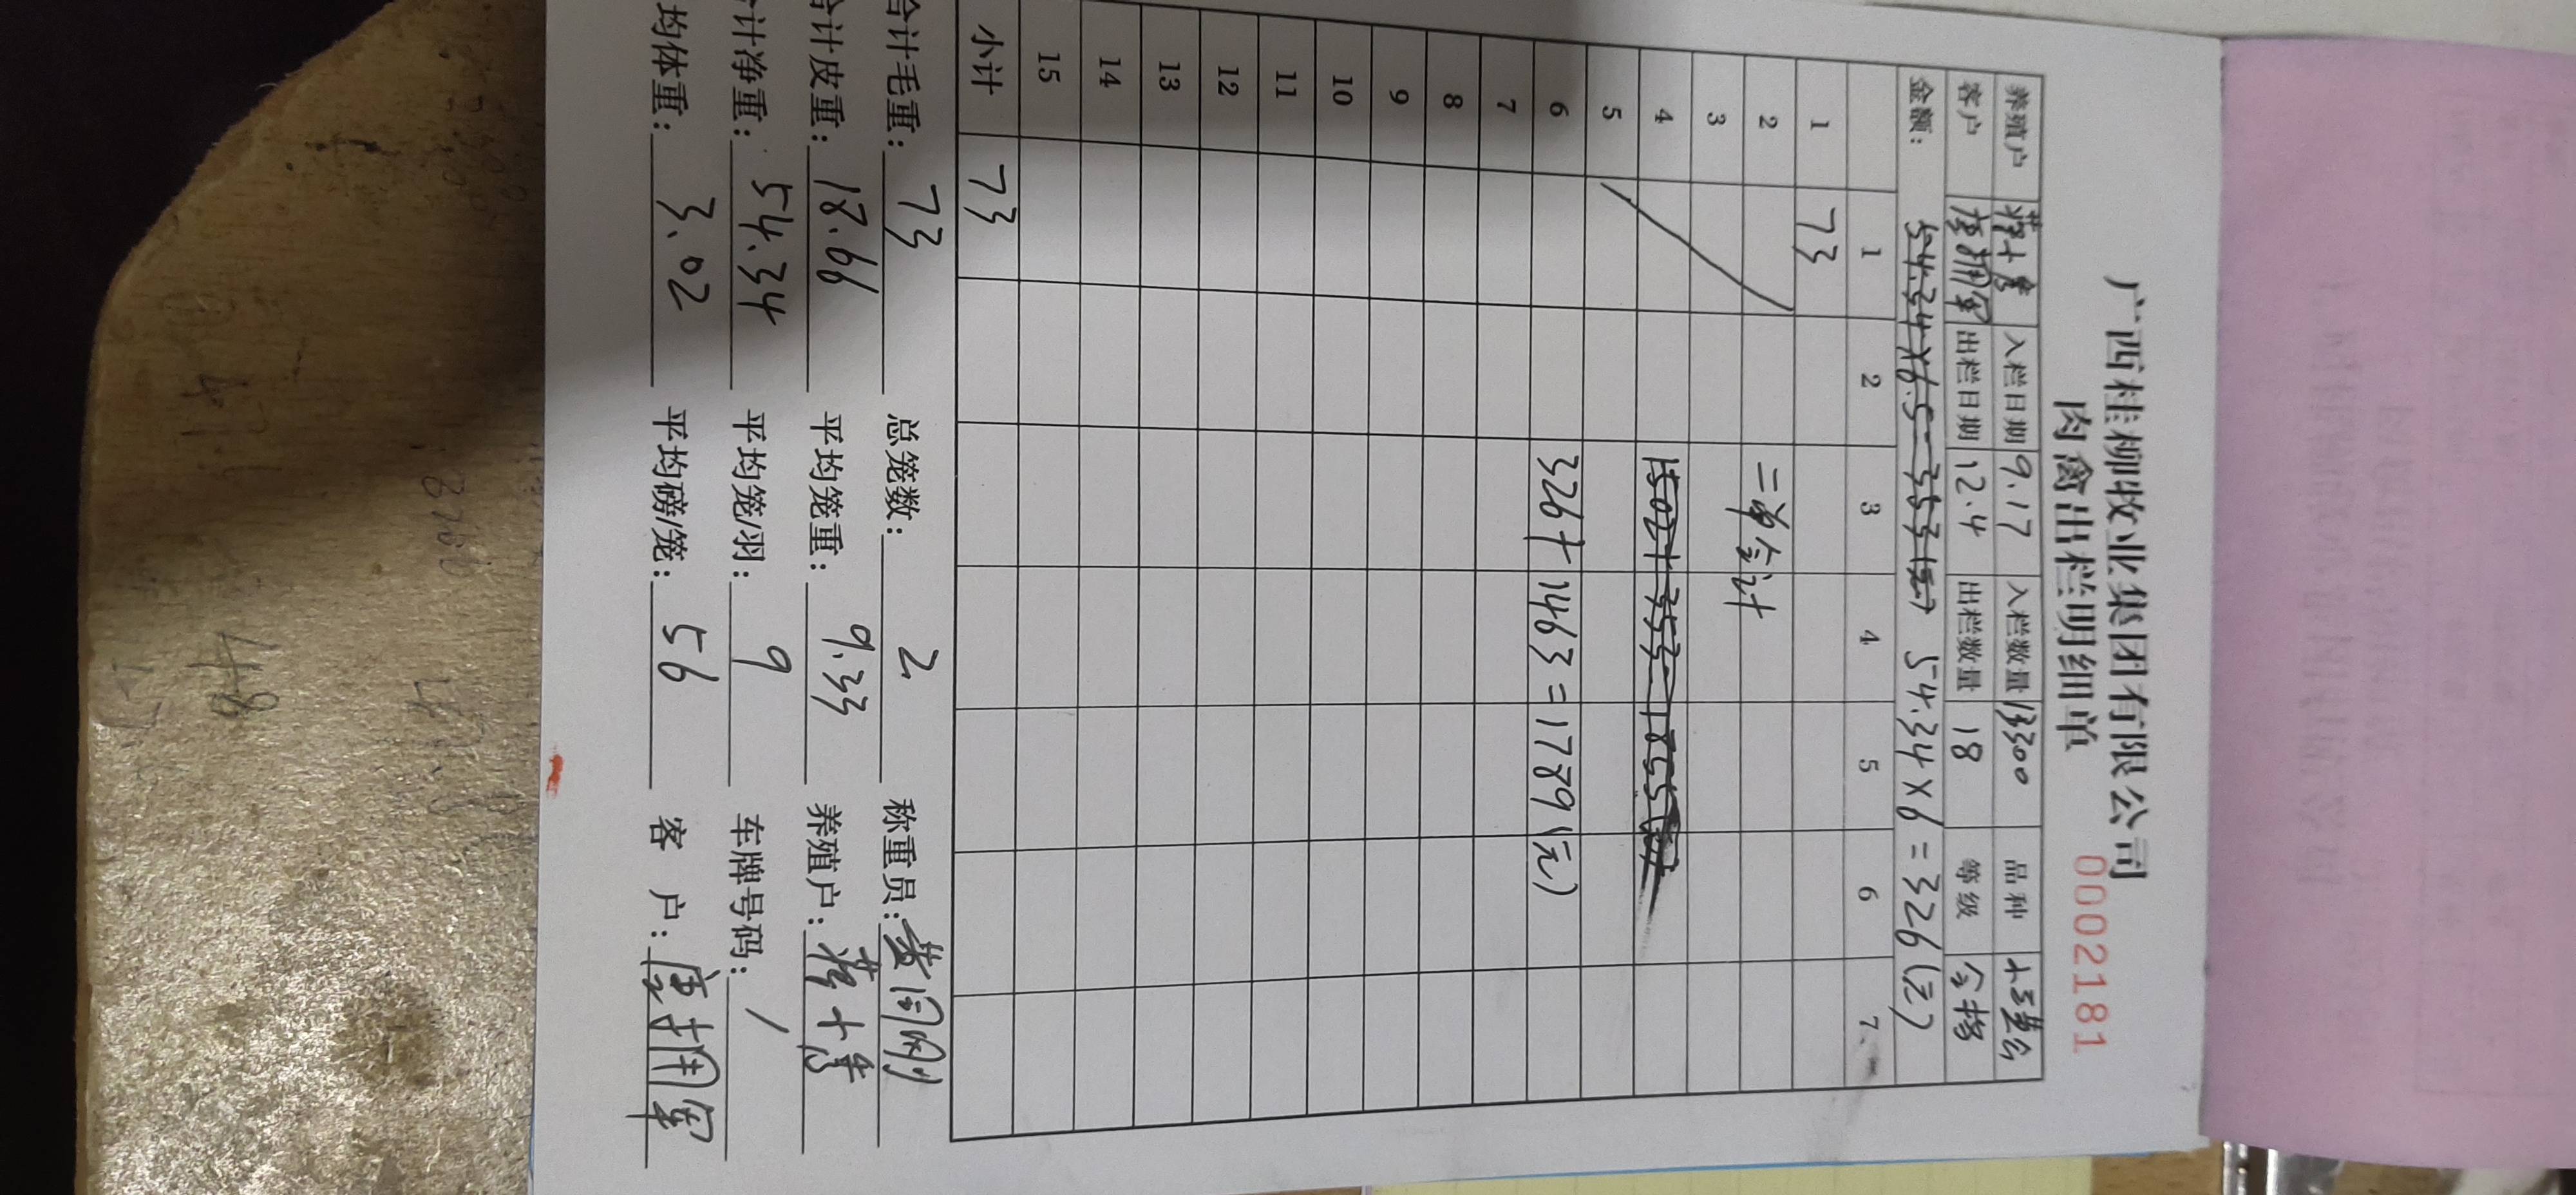 广西桂柳牧业集团有限公司
肉禽出栏明细单 00021181
养殖户 入栏日期 9.17 入栏数量 13300 品种
客户 出栏日期 12.4 出栏数量 18 等级 合格
金额: 54.34×6.5=353(元) 54.34×6=326(元)
1 2 3 4 5 6 7
1 73
2 二单合计
3
4 1502+353=1855(元)
5
6 326+1463=1789(元)
7
8
9
10
11
12
13
14
15
小计 73
合计毛重: 73 总笼数: 2 称重员:
合计皮重: 18.66 平均笼重: 9.33 养殖户:
计净重: 54.34 平均笼/羽: 9 车牌号码: /
均体重: 3.02 平均磅/笼: 56 客户: